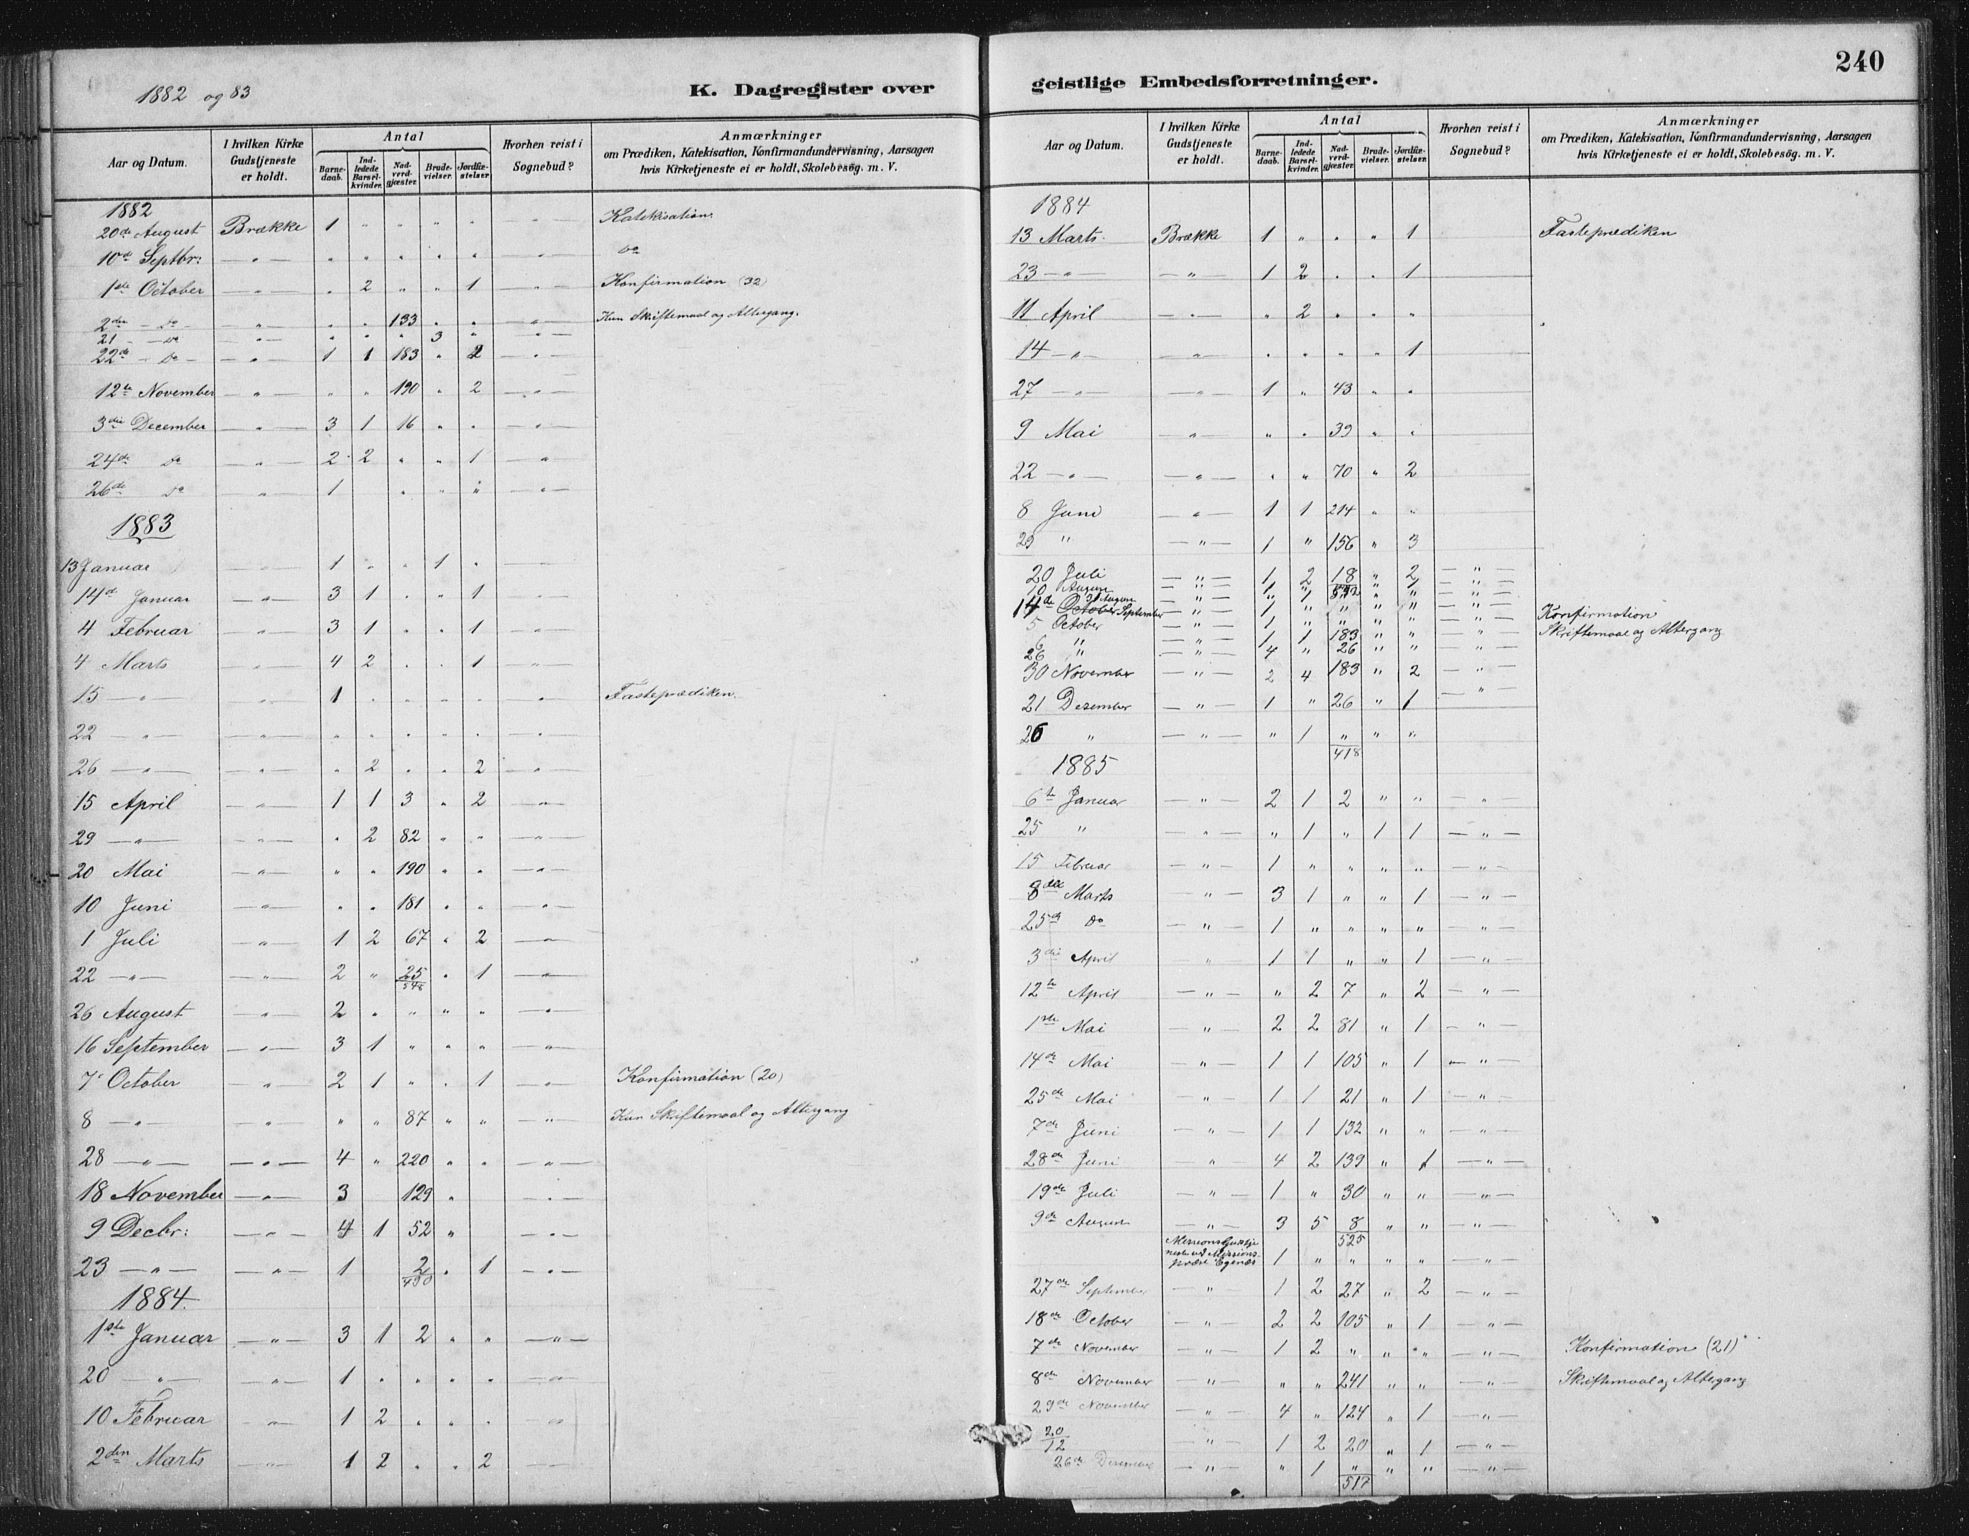 240
1882 og 83
K. Dagregister over
geistlige Embedsforretninger.
Aar og Datum. I hvilken Kirke Gudstjeneste er holdt. Antal Barnedaab. Indledede Barselkvinder. Nadverdgjæster Brudevielser. Jordfæstelser Hvorhen reist i Sognebud? Anmærkninger om Prædiken, Katekisation, Konfirmandundervisning, Aarsagen hvis Kirketjeneste ei er holdt, Skolebesøg. m. V.
1882
20de August Brække 1 " " " " — " — Katekisation.
10de Septbr: — " — " " " " " — " — Do
1ste October — " — " 2 " " 1 — " — Konfirmation (32)
2den — Do — " — " " 133 " " — " — Kun Skriftemaal og Altergang.
21 — Do — " — " " " 3 " — " —
22de — Do — — " — 1 1 183 " 2 — " —
12te November — " — " " 190 " 2 — " —
3die December — " — 3 1 16 " " — " —
24de Do — " — 2 2 " " 1 — " —
26de Do — " — 1 " " " — " —
1883
13 Januar — " — 1 " " 1 " — " —
14de Januar — " — 3 1 " " 1 — " —
4 Februar — " — 3 1 " " 1 — " —
4 Marts — " — 4 2 " " 1 — " —
15 — " — — " — 1 " " " " — " — Fasteprædiken.
22 — " — — " — " " " " " — " —
26 — " — — " — " 2 " " 2 — " —
15 April — " — 1 1 3 " 2 — " —
29 — " — — " — " 2 82 " " — " —
20 Mai — " — " " 190 " " — " —
10 Juni — " — " " 181 " " — " —
1 Juli — " — 1 2 67 " 2 — " —
22 — " — — " — 2 " 25 " 1 — " —
548
26 August — " — 2 " " " " — " —
16 September — " — 3 1 " " " — " —
7 October — " — 2 1 " " 1 — " — Konfirmation (20)
8 — " — — " — " " 87 " " — " — Kun Skriftemaal og Altergang
28 — " — — " — 4 " 220 " " — " —
18 November — " — 3 129 " — " —
9 Decbr: — " — 4 1 52 " — " —
23 — " — — " — 1 2 " 1 — " —
490
1884.
1ste Januar — " — 3 1 2 " " — " —
20 — " — — " — 1 " " " " — " —
10 Februar — " — 1 2 " " " — " —
2den Marts — " — 1 2 " " 2 — " —
Aar og Datum. I hvilken Kirke Gudstjeneste er holdt. Antal Barnedaab. Indledede Barselkvinder. Nadverdgjæster Brudevielser. Jordfæstelser Hvorhen reist i Sognebud? Anmærkninger om Prædiken, Katekisation, Konfirmandundervisning, Aarsagen hvis Kirketjeneste ei er holdt, Skolebesøg. m. V.
1884
13 Marts. Brække 1 " " " 1 Fasteprædiken
23 — " — — " — 1 2 " " 1
11 April — " — " 2 " " "
14 — " — — " — " " " " 1
27 — " — — " — 1 " 43 " "
9 Mai — " — " " 39 " "
22 — " — — " — " " 70 " 2
8 Juni — " — 1 1 214 " "
29 " — " — 1 " 156 " 3
20 Juli — " — 1 2 18 " 2 — " —
10 August — " — 1 " " 1 — " —
14de October September — " — 1 " " " " — " —
5 October — " — 1 " " " " — " — Konfirmation
6 " — " — 1 1 183 " " — " — Skriftemaal og Altergang
26 " — " — 4 " 26 " " — " —
30 November — " — 2 4 183 " 2 — " —
21 Dezember — " — 1 " 26 " 1 — " —
26 " — " — " 1 " " "
418
1885
6te Januar — " — 2 1 2 " " — "
25 " — " — " 1 " 1 1 — " —
15 Februar — " — 1 " " " " — " —
8de Marts — " — 3 1 " " 1 — " —
25de Do — " — 1 " " " " — " —
3die April — " — 1 1 " " 1 — " —
12te April — " — " 2 7 " 2 — " —
1ste Mai — " — 2 2 81 " 1 — " —
14de Mai — " — 1 1 105 " 1 — " —
25de Mai — " — 1 1 21 " 1 — " —
7de Juni — " — 1 1 132 " " — " —
28de Juni — " — 4 2 139 " 1 — " —
19de Juli — " — 1 " 30 " " — " —
9de August — " — 3 5 8 " " — " —
525
Missions 1 " " " " — " —
27de September — " — 1 2 27 " 2 — " —
18de October — " — 2 2 105 " 1 — " —
7de November — " — 1 2 " " " — " — Konfirmation (21)
8de November — " — " " 241 " " — " — Skriftemaal og Altergang
29de November — " — 4 " 124 " 1 — " —
20/12 — " — 1 2 20 " 1 — " —
26de Dezember — " — " 1 " " " — " —
517